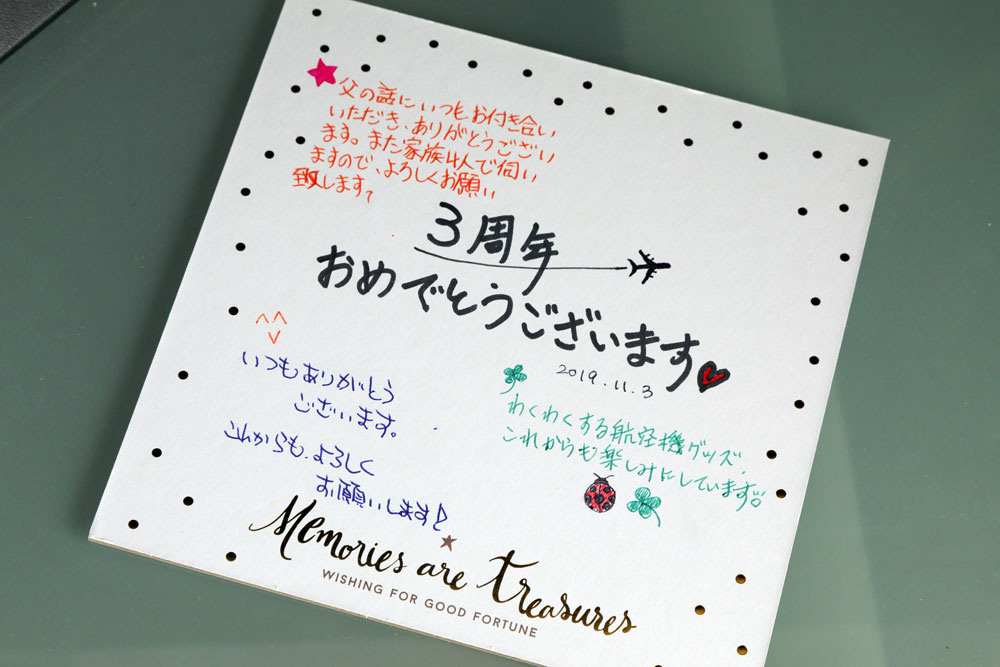 父の話にいつもお付き合い
いただき、ありがとうござい
ます。また家族4人で伺い
ますので、よろしくお願い
致します
3周年
おめでとうございます
2019.11.3
いつもありがとう
ございます。
これからも、よろしく
お願いします!
わくわくする航空機グッズ、
これからも楽しみにしています
Memories are Treasures
WISHING FOR GOOD FORTUNE